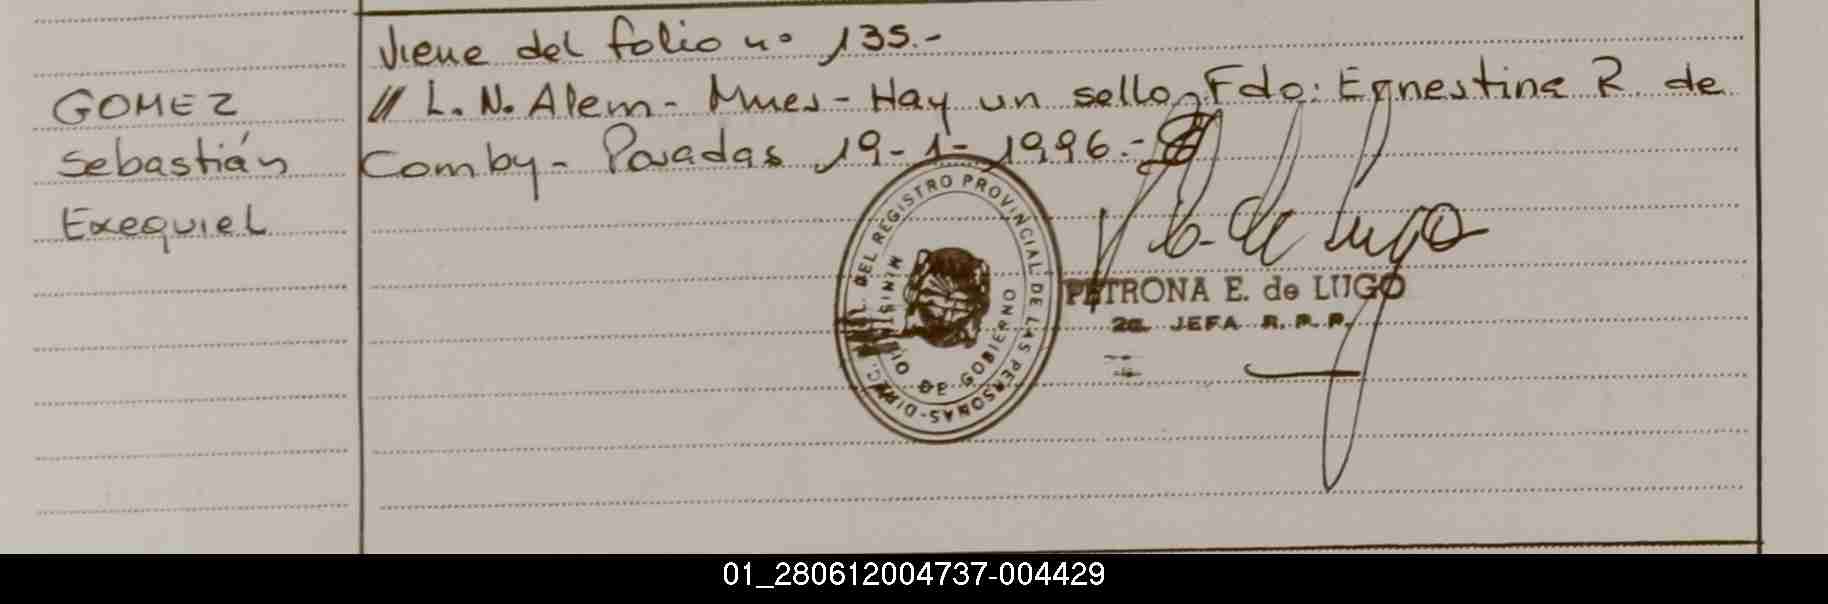 Viene del folio nº 135.-
GOMEZ
Sebastián
Exequiel
// L. N. Alem - Mnes - Hay un sello, Fdo: Ernestina R. de
Comby - Posadas 19-1-1996.-
DIREC. GRAL. DEL REGISTRO PROVINCIAL DE LAS PERSONAS
MINISTERIO DE GOBIERNO
P. E. de Lugo
PETRONA E. de LUGO
2a. JEFA R. P. P.
01_280612004737-004429